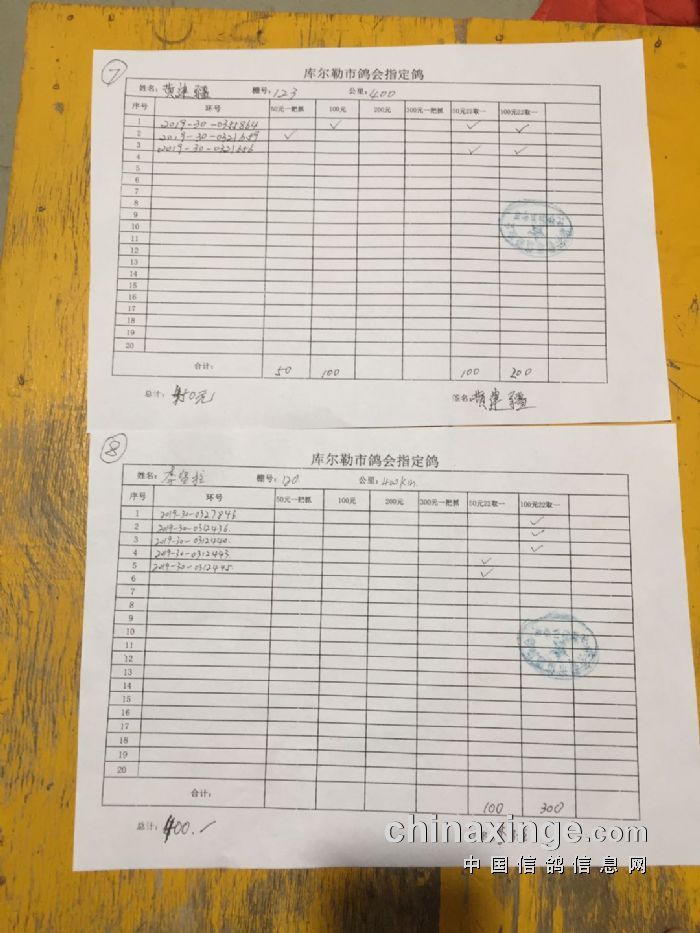 7
库尔勒市鸽会指定鸽
姓名: 黄建疆 棚号: 123 公里: 400
序号 环号 50元一把抓 100元 200元 300元一把抓 50元22取一 100元22取一
1 2019-30-0351864 ✓ ✓ ✓
2 2019-30-0321659 ✓
3 2019-30-0321656 ✓ ✓
4
5
6
7
8
9
10
11
12
13
14
15
16
17
18
19
20
合计: 50 100 100 200
总计: 450元 签名: 黄建疆
8
库尔勒市鸽会指定鸽
姓名: 棚号: 120 公里: 400km
序号 环号 50元一把抓 100元 200元 300元一把抓 50元22取一 100元22取一
1 2019-30-0327846 ✓
2 2019-30-0312436 ✓
3 2019-30-0312440 ✓
4 2019-30-0312443 ✓
5 2019-30-0312445 ✓
6
7
8
9
10
11
12
13
14
15
16
17
18
19
20
合计: 100 300
总计: 400.-
chinaxinge.com
中国信鸽信息网